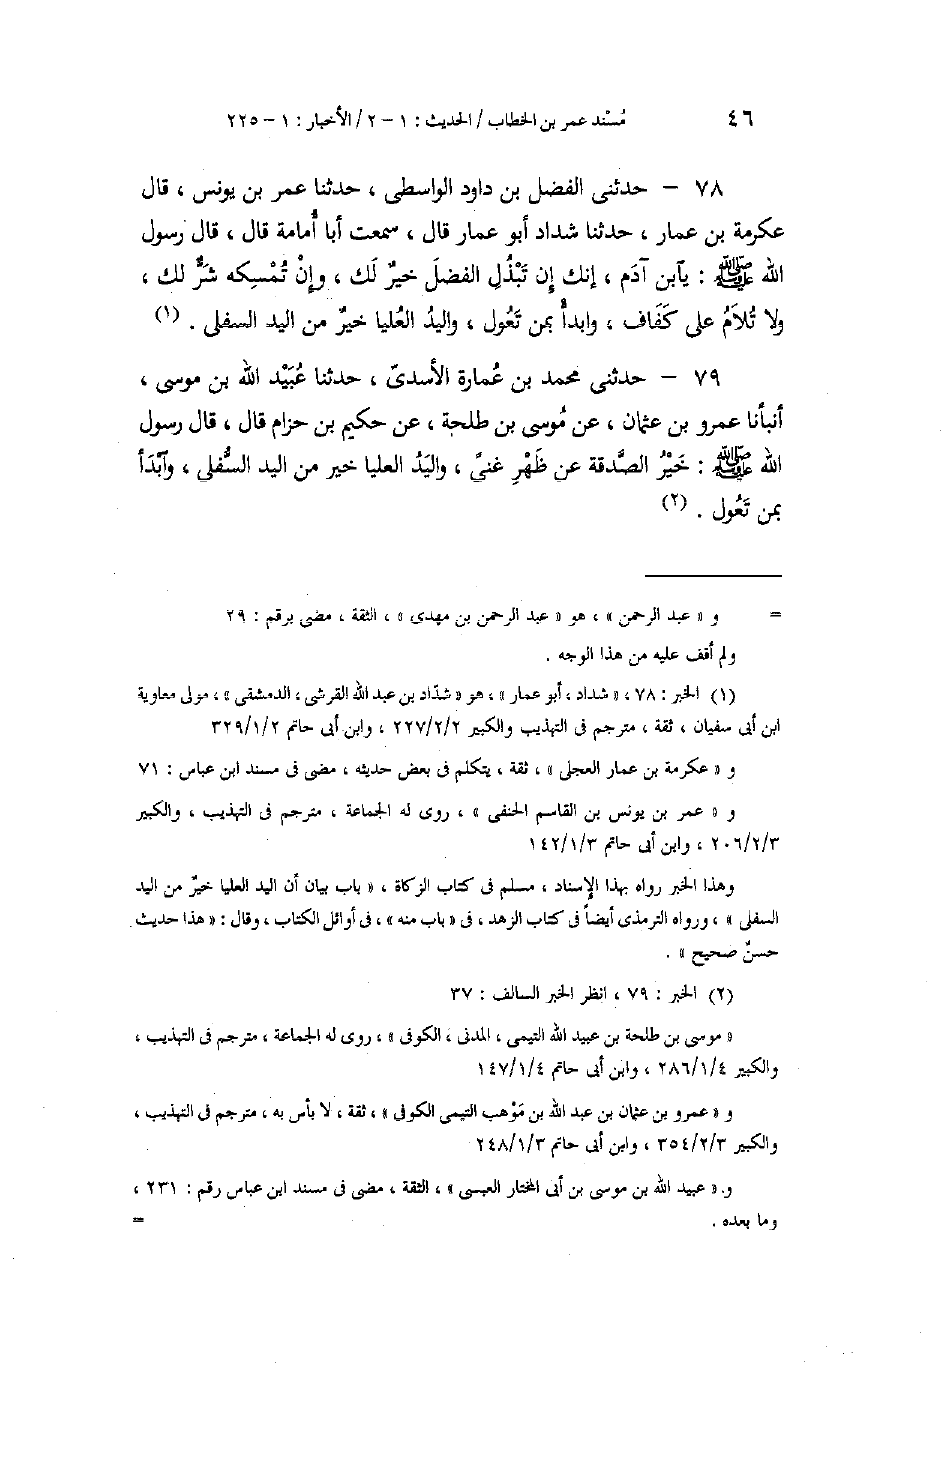 ٤٦ مُسْند عمر بن الخطاب / الحديث : ١ – ٢ / الأخبار : ١ – ٢٢٥
٧٨ – حدثنى الفضل بن داود الواسطى ، حدثنا عمر بن يونس ، قال
عكرمة بن عمار ، حدثنا شداد أبو عمار قال ، سمعت أبا أُمامة قال ، قال رسول
الله ﷺ : يآبن آدَم ، إنك إن تَبْذُلِ الفضلَ خيرٌ لَك ، وإنْ تُمْسِكه شَرٌّ لك ،
ولا تُلاَمُ على كَفَاف ، وابدأْ بمن تَعُول ، واليدُ العُليا خيرٌ من اليد السفلى . (١)
٧٩ – حدثنى محمد بن عُمارة الأسدىّ ، حدثنا عُبَيْد الله بن موسى ،
أنبأنا عمرو بن عثمان ، عن مُوسى بن طلحة ، عن حكيم بن حزام قال ، قال رسول
الله ﷺ : خَيْرُ الصَّدقة عن ظَهْرِ غنىً ، واليَدُ العليا خير من اليد السُّفلى ، وآبْدَأ
بمن تَعُول . (٢)
= و « عبد الرحمن » ، هو « عبد الرحمن بن مهدى » ، الثقة ، مضى برقم : ٢٩
ولم أقف عليه من هذا الوجه .
(١) الخبر : ٧٨ ، « شداد ، أبو عمار » ، هو « شدّاد بن عبد الله القرشى ، الدمشقى » ، مولى معاوية
ابن أبى سفيان ، ثقة ، مترجم فى التهذيب والكبير ٢/٢/٢٢٧ ، وابن أبى حاتم ٢/١/٣٢٩
و « عكرمة بن عمار العجلى » ، ثقة ، يتكلم فى بعض حديثه ، مضى فى مسند ابن عباس : ٧١
و « عمر بن يونس بن القاسم الحنفى » ، روى له الجماعة ، مترجم فى التهذيب ، والكبير
٣/٢/٢٠٦ ، وابن أبى حاتم ٣/١/١٤٢
وهذا الخبر رواه بهذا الإسناد ، مسلم فى كتاب الزكاة ، « باب بيان أن اليد العليا خيرٌ من اليد
السفلى » ، ورواه الترمذى أيضاً فى كتاب الزهد ، فى « باب منه » ، فى أوائل الكتاب ، وقال : « هذا حديث
حسنٌ صحيح » .
(٢) الخبر : ٧٩ ، انظر الخبر السالف : ٣٧
« موسى بن طلحة بن عبيد الله التيمى ، المدنى ، الكوفى » ، روى له الجماعة ، مترجم فى التهذيب ،
والكبير ٤/١/٢٨٦ ، وابن أبى حاتم ٤/١/١٤٧
و « عمرو بن عثمان بن عبد الله بن مَوْهب التيمى الكوفى » ، ثقة ، لا بأس به ، مترجم فى التهذيب ،
والكبير ٣/٢/٣٥٤ ، وابن أبى حاتم ٣/١/٢٤٨
و « عبيد الله بن موسى بن أبى المختار العبسى » ، الثقة ، مضى فى مسند ابن عباس رقم : ٢٣١ ،
وما بعده . =